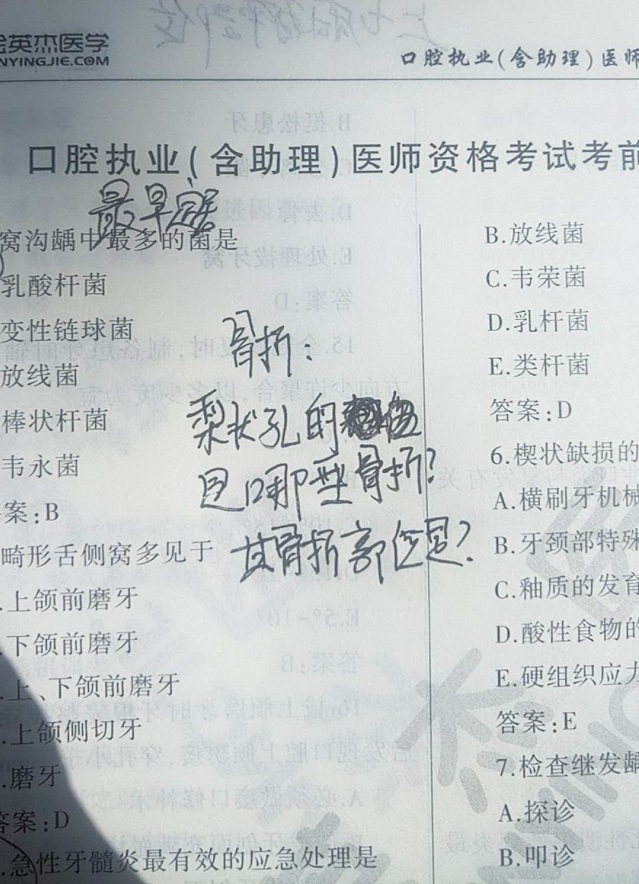 金英杰医学
NYINGJIE.COM
口腔执业(含助理)医师
口腔执业(含助理)医师资格考试考前
最早定居
窝沟龋中最多的菌是
乳酸杆菌
变性链球菌
放线菌
棒状杆菌
韦永菌
案:B
畸形舌侧窝多见于
.上颌前磨牙
.下颌前磨牙
.上、下颌前磨牙
.上颌侧切牙
.磨牙
答案:D
.急性牙髓炎最有效的应急处理是
骨折:
梨状孔的
是口哪型骨折?
其骨折部位是?
B.放线菌
C.韦荣菌
D.乳杆菌
E.类杆菌
答案:D
6.楔状缺损的
A.横刷牙机械
B.牙颈部特殊
C.釉质的发育
D.酸性食物的
E.硬组织应力
答案:E
7.检查继发龋
A.探诊
B.叩诊